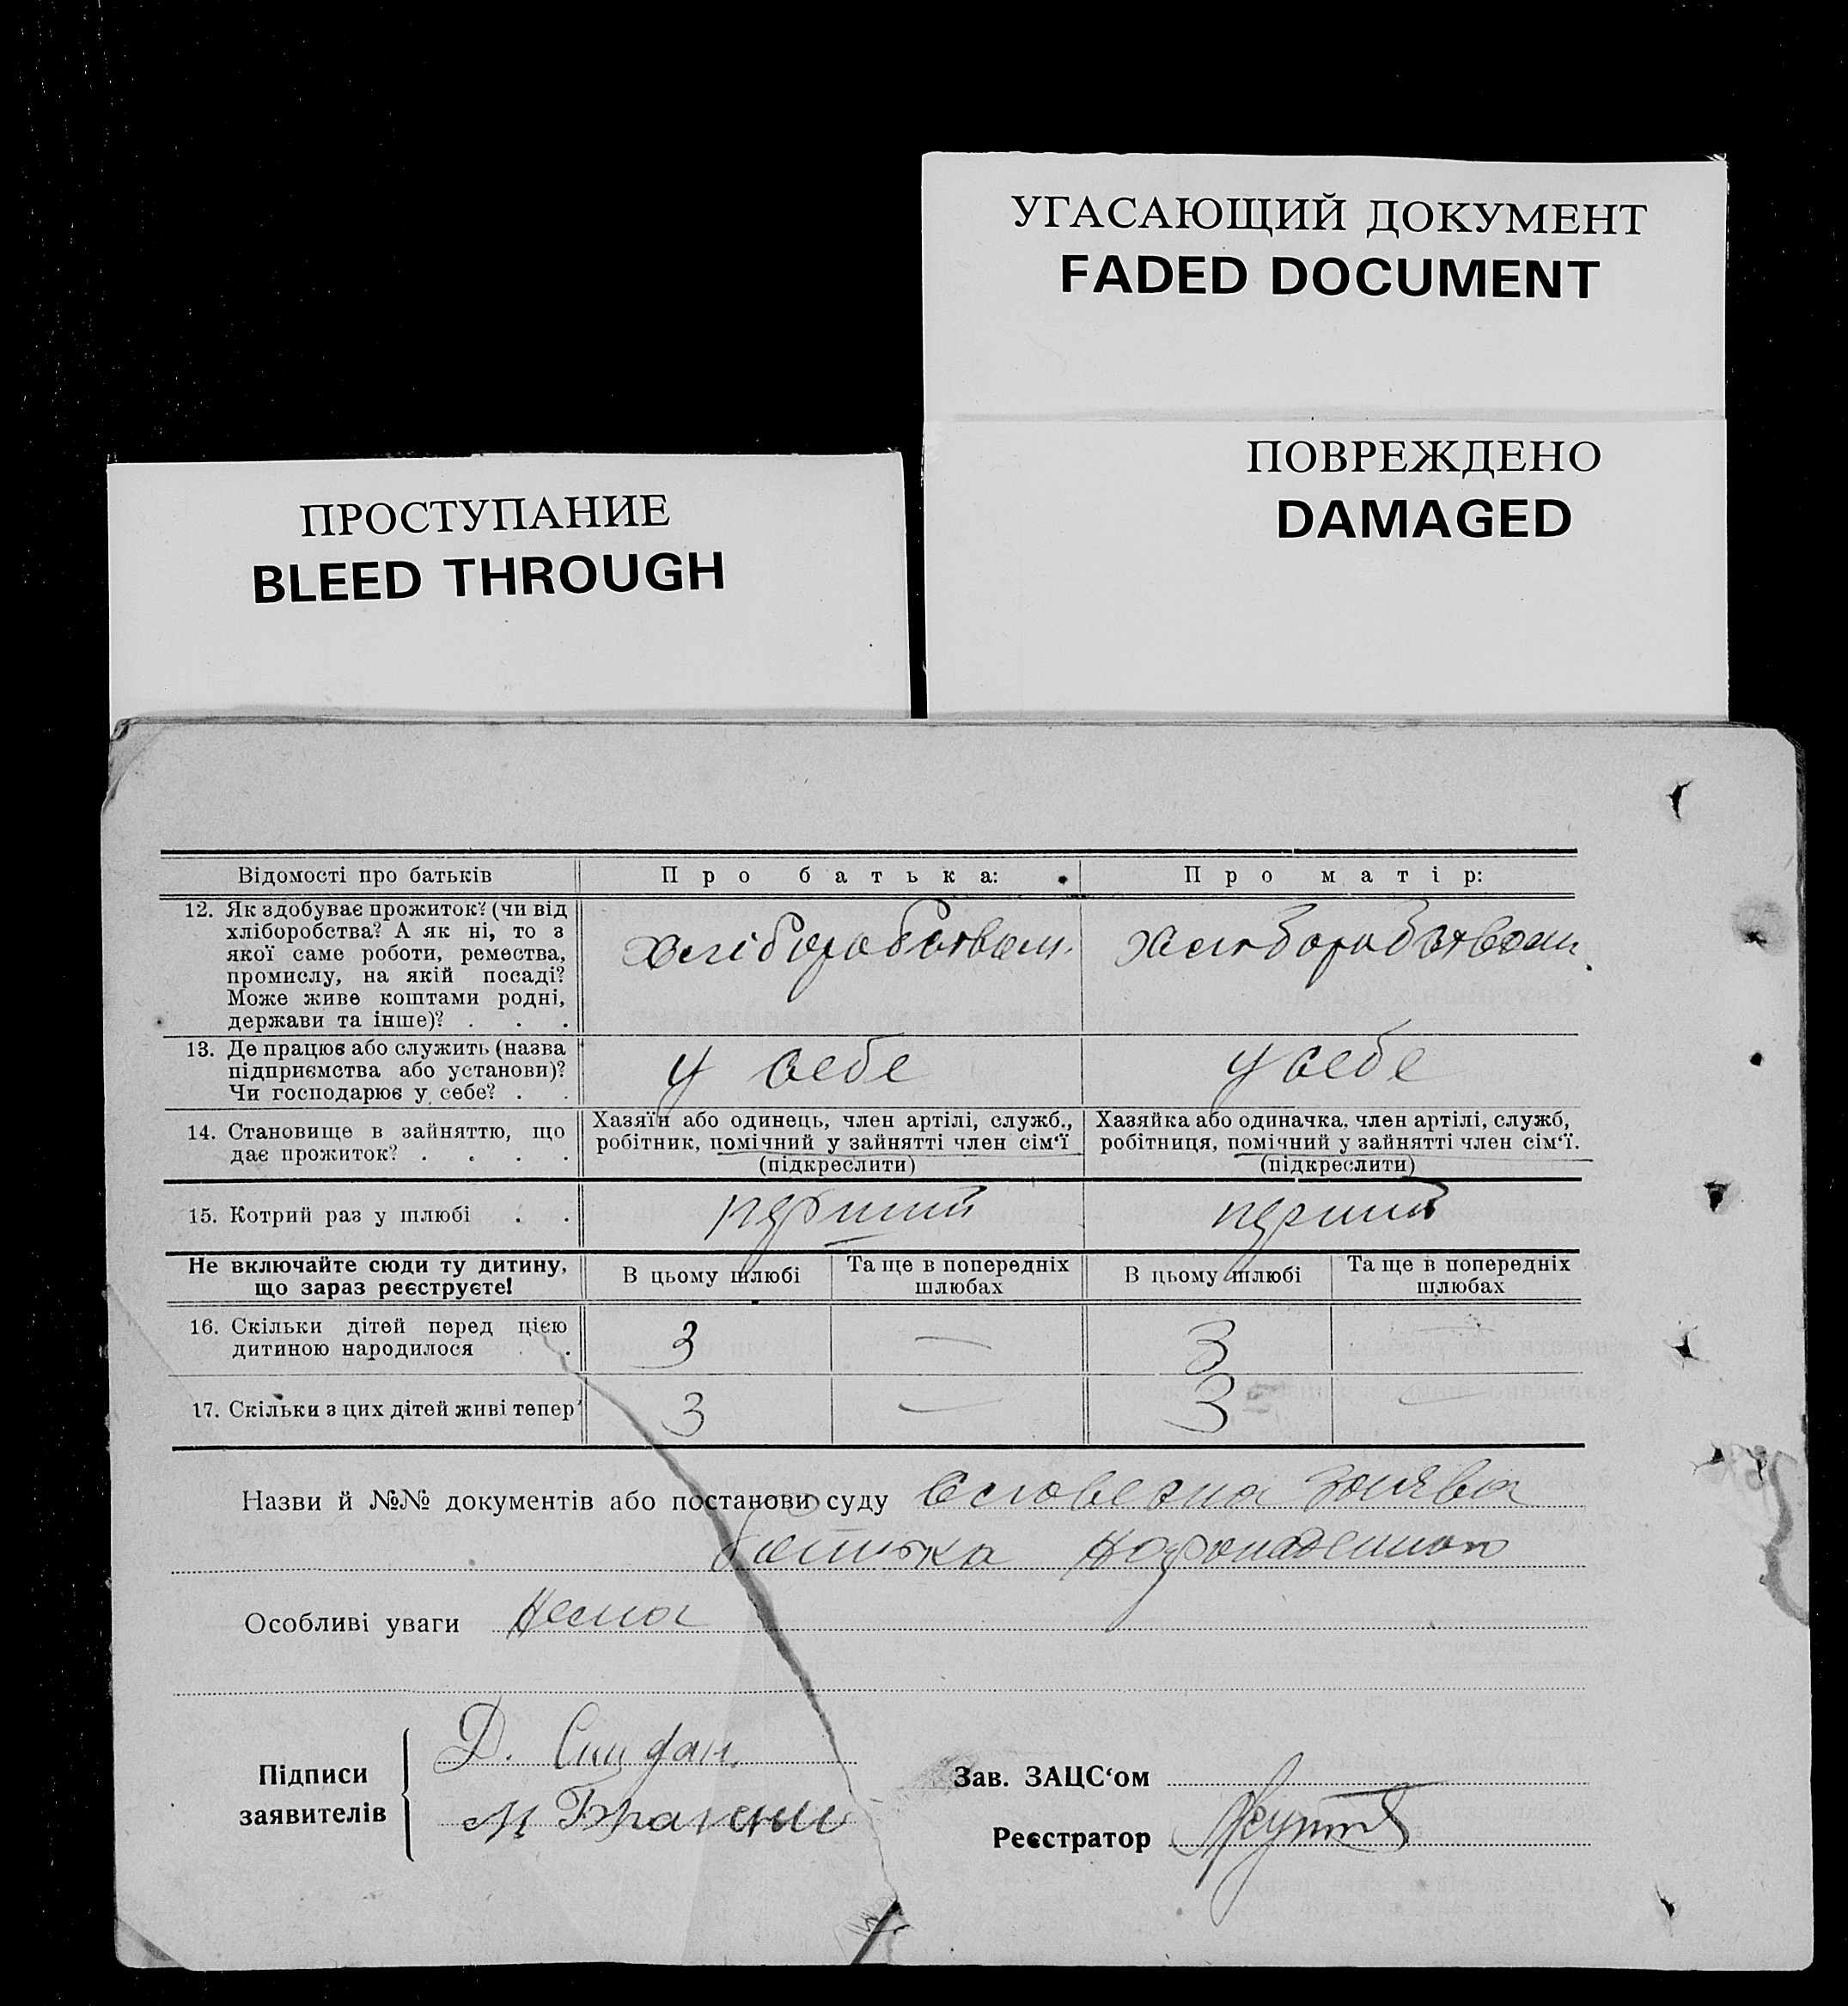 УГАСАЮЩИЙ ДОКУМЕНТ
FADED DOCUMENT
ПОВРЕЖДЕНО
DAMAGED
ПРОСТУПАНИЕ
BLEED THROUGH
Відомості про батьків
Про батька:
Про матір:
12. Як здобуває прожиток? (чи від
хліборобства? А як ні, то з
якої саме роботи, ремества,
промислу, на якій посаді?
Може живе коштами родні,
держави та інше)? . . .
хліборобством.
хліборобством.
13. Де працює або служить (назва
підприємства або установи)?
Чи господарює у себе? . .
у себе
у себе
14. Становище в зайняттю, що
дає прожиток? . . . .
Хазяїн або одинець, член артілі, служб.,
робітник, помічний у зайнятті член сім‘ї
(підкреслити)
Хазяйка або одиначка, член артілі, служб,
робітниця, помічний у зайнятті член сім‘ї.
(підкреслити)
15. Котрий раз у шлюбі . .
перший
перший
Не включайте сюди ту дитину,
що зараз реєструєте!
В цьому шлюбі
Та ще в попередніх
шлюбах
В цьому шлюбі
Та ще в попередніх
шлюбах
16. Скільки дітей перед цією
дитиною народилося . .
3
—
3
—
17. Скільки з цих дітей живі тепер
3
—
3
—
Назви й №№ документів або постанови суду словесна заява
батька
Особливі уваги нема
Підписи
заявителів
Д.
М
Зав. ЗАЦС‘ом
Реєстратор